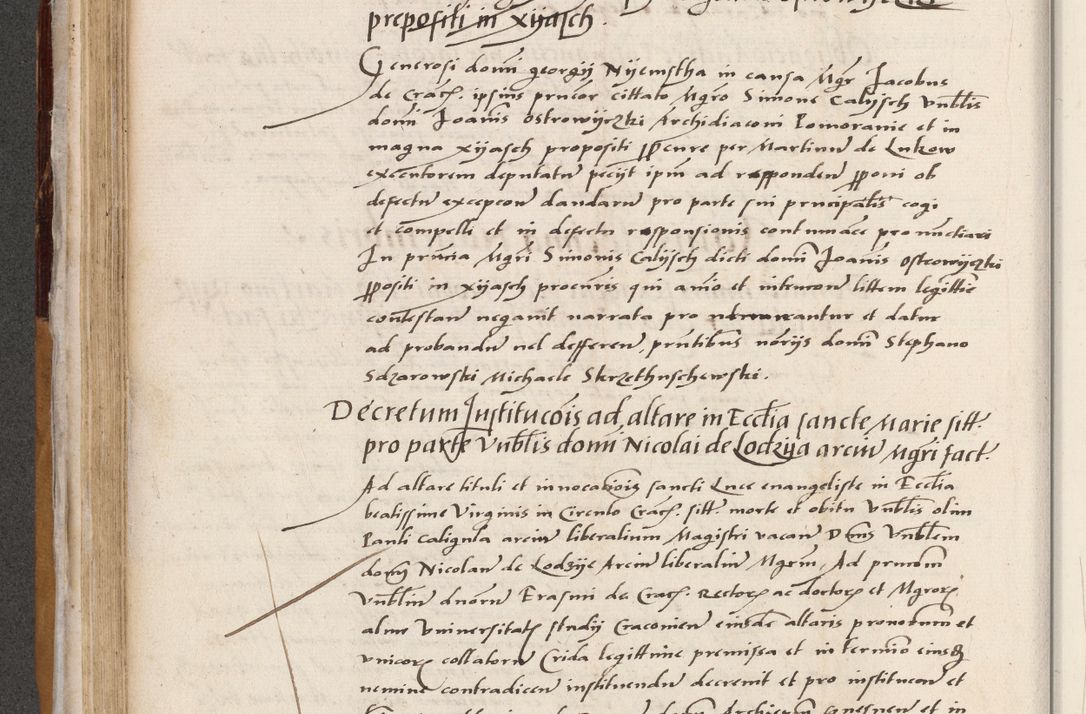 prepositi in xijasch.
Generosi domi georgij Nijemstha in causa Mgr Jacobus
de Crac. ipsius prucor cittato Mgro Simone Calijsch Vnblis
domi Joanis Ostrowijczki Archidiaconi Pomoranie et in
magna xijasch propositi ppenre per Martinu de Lukow
executorem deputatu petijt ipm ad responden pponi ob
defectu excepcon dandaru pro parte sui prncipalis cogi
et compelli et in defectu responsionis contumace pronuctiari
In prntia Mgri Simonis Calijsch dicti domi Joanis Ostrowijczki
ppositi in xijasch procuris qui animo et intencon littem legittie
contestan negauit narrata pro ut narrantur et datur
ad probandu uel defferen, prntibus norijs domi Stephano
Sdzarowski Michaele Skrzethuschewski.
Decretum Institucois ad altare in Ecclia sancte Marie sitt.
pro parte Vnblis domi Nicolai de Lodzija arciu Mgri fact.
Ad altare tituli et inuocationis sancti Luce euangeliste in Ecclia
beatissime Virginis in Circulo Crac. sitt. morte et obitu Vnblis olim
Pauli Caligula arciu liberalium Magistri vacan Dnus Vnblem
domi Nicolau de Lodzije Arciu liberaliu Mgrm, Ad prntacom
Vnbliu dnoru Erasmi de Crac. Rectoris ac doctoru et Mgroru
alme Vniuersitatis studij Cracouien eiusde altaris pronotorum et
vnicoru collatoru Crida legittime premissa et in termino eiusq
nemine contradicen instituendu decreuit et pro institucon et